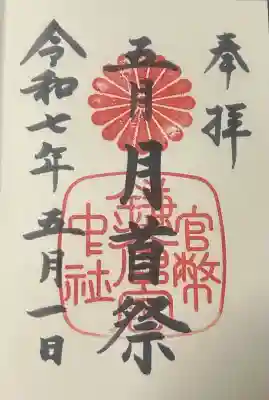 奉拝
五月 月首祭
令和七年 五月一日
官幣
鎌倉宮
中社